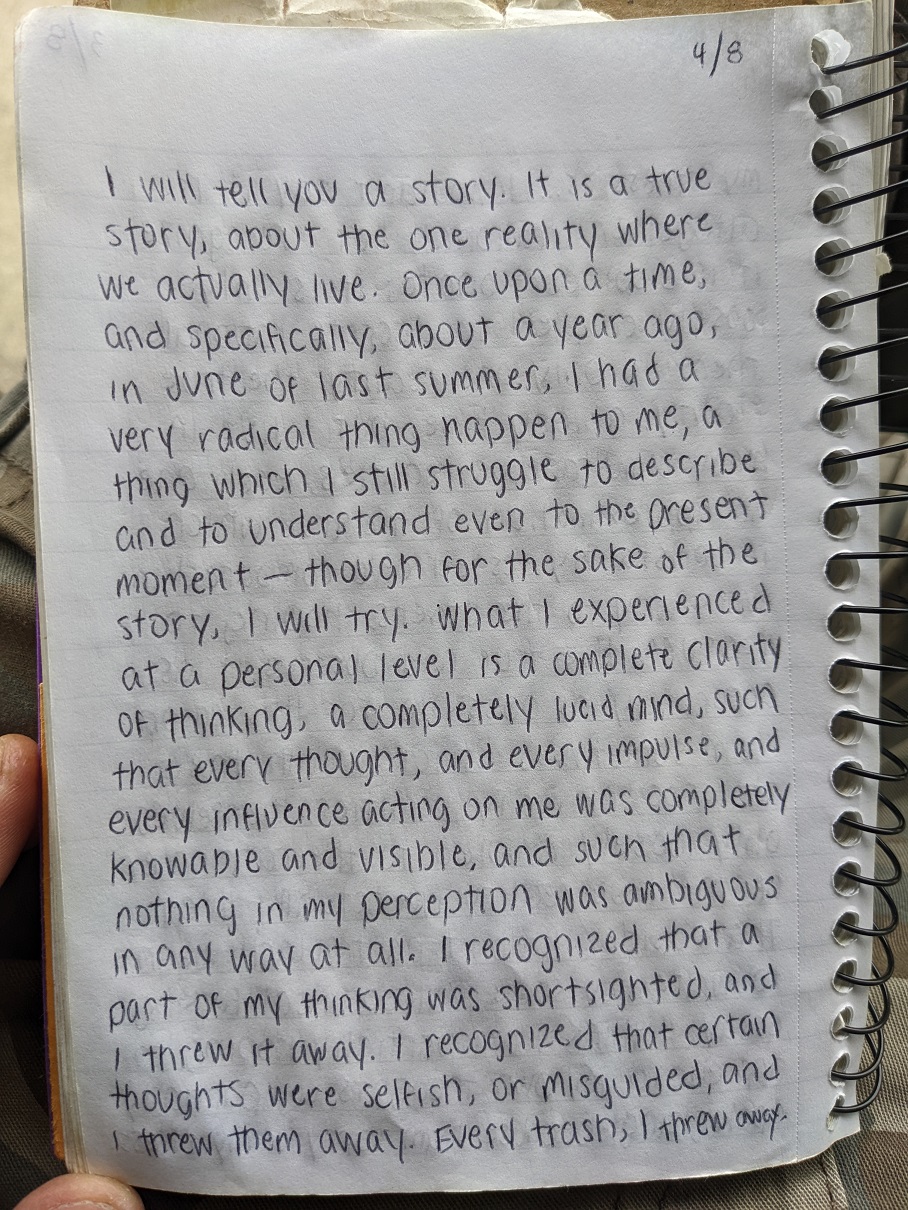 4/8
I will tell you a story. It is a true
story, about the one reality where
we actually live. Once upon a time,
and specifically, about a year ago,
in June of last summer, I had a
very radical thing happen to me, a
thing which I still struggle to describe
and to understand even to the present
moment — though for the sake of the
story, I will try. What I experienced
at a personal level is a complete clarity
of thinking, a completely lucid mind, such
that every thought, and every impulse, and
every influence acting on me was completely
knowable and visible, and such that
nothing in my perception was ambiguous
in any way at all. I recognized that a
part of my thinking was shortsighted, and
I threw it away. I recognized that certain
thoughts were selfish, or misguided, and
I threw them away. Every trash, I threw away.